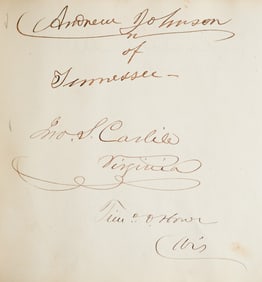 Andrew Johnson
of
Tennessee
Jno. S. Carlile
Virginia
Timo. O. Howe
Wis